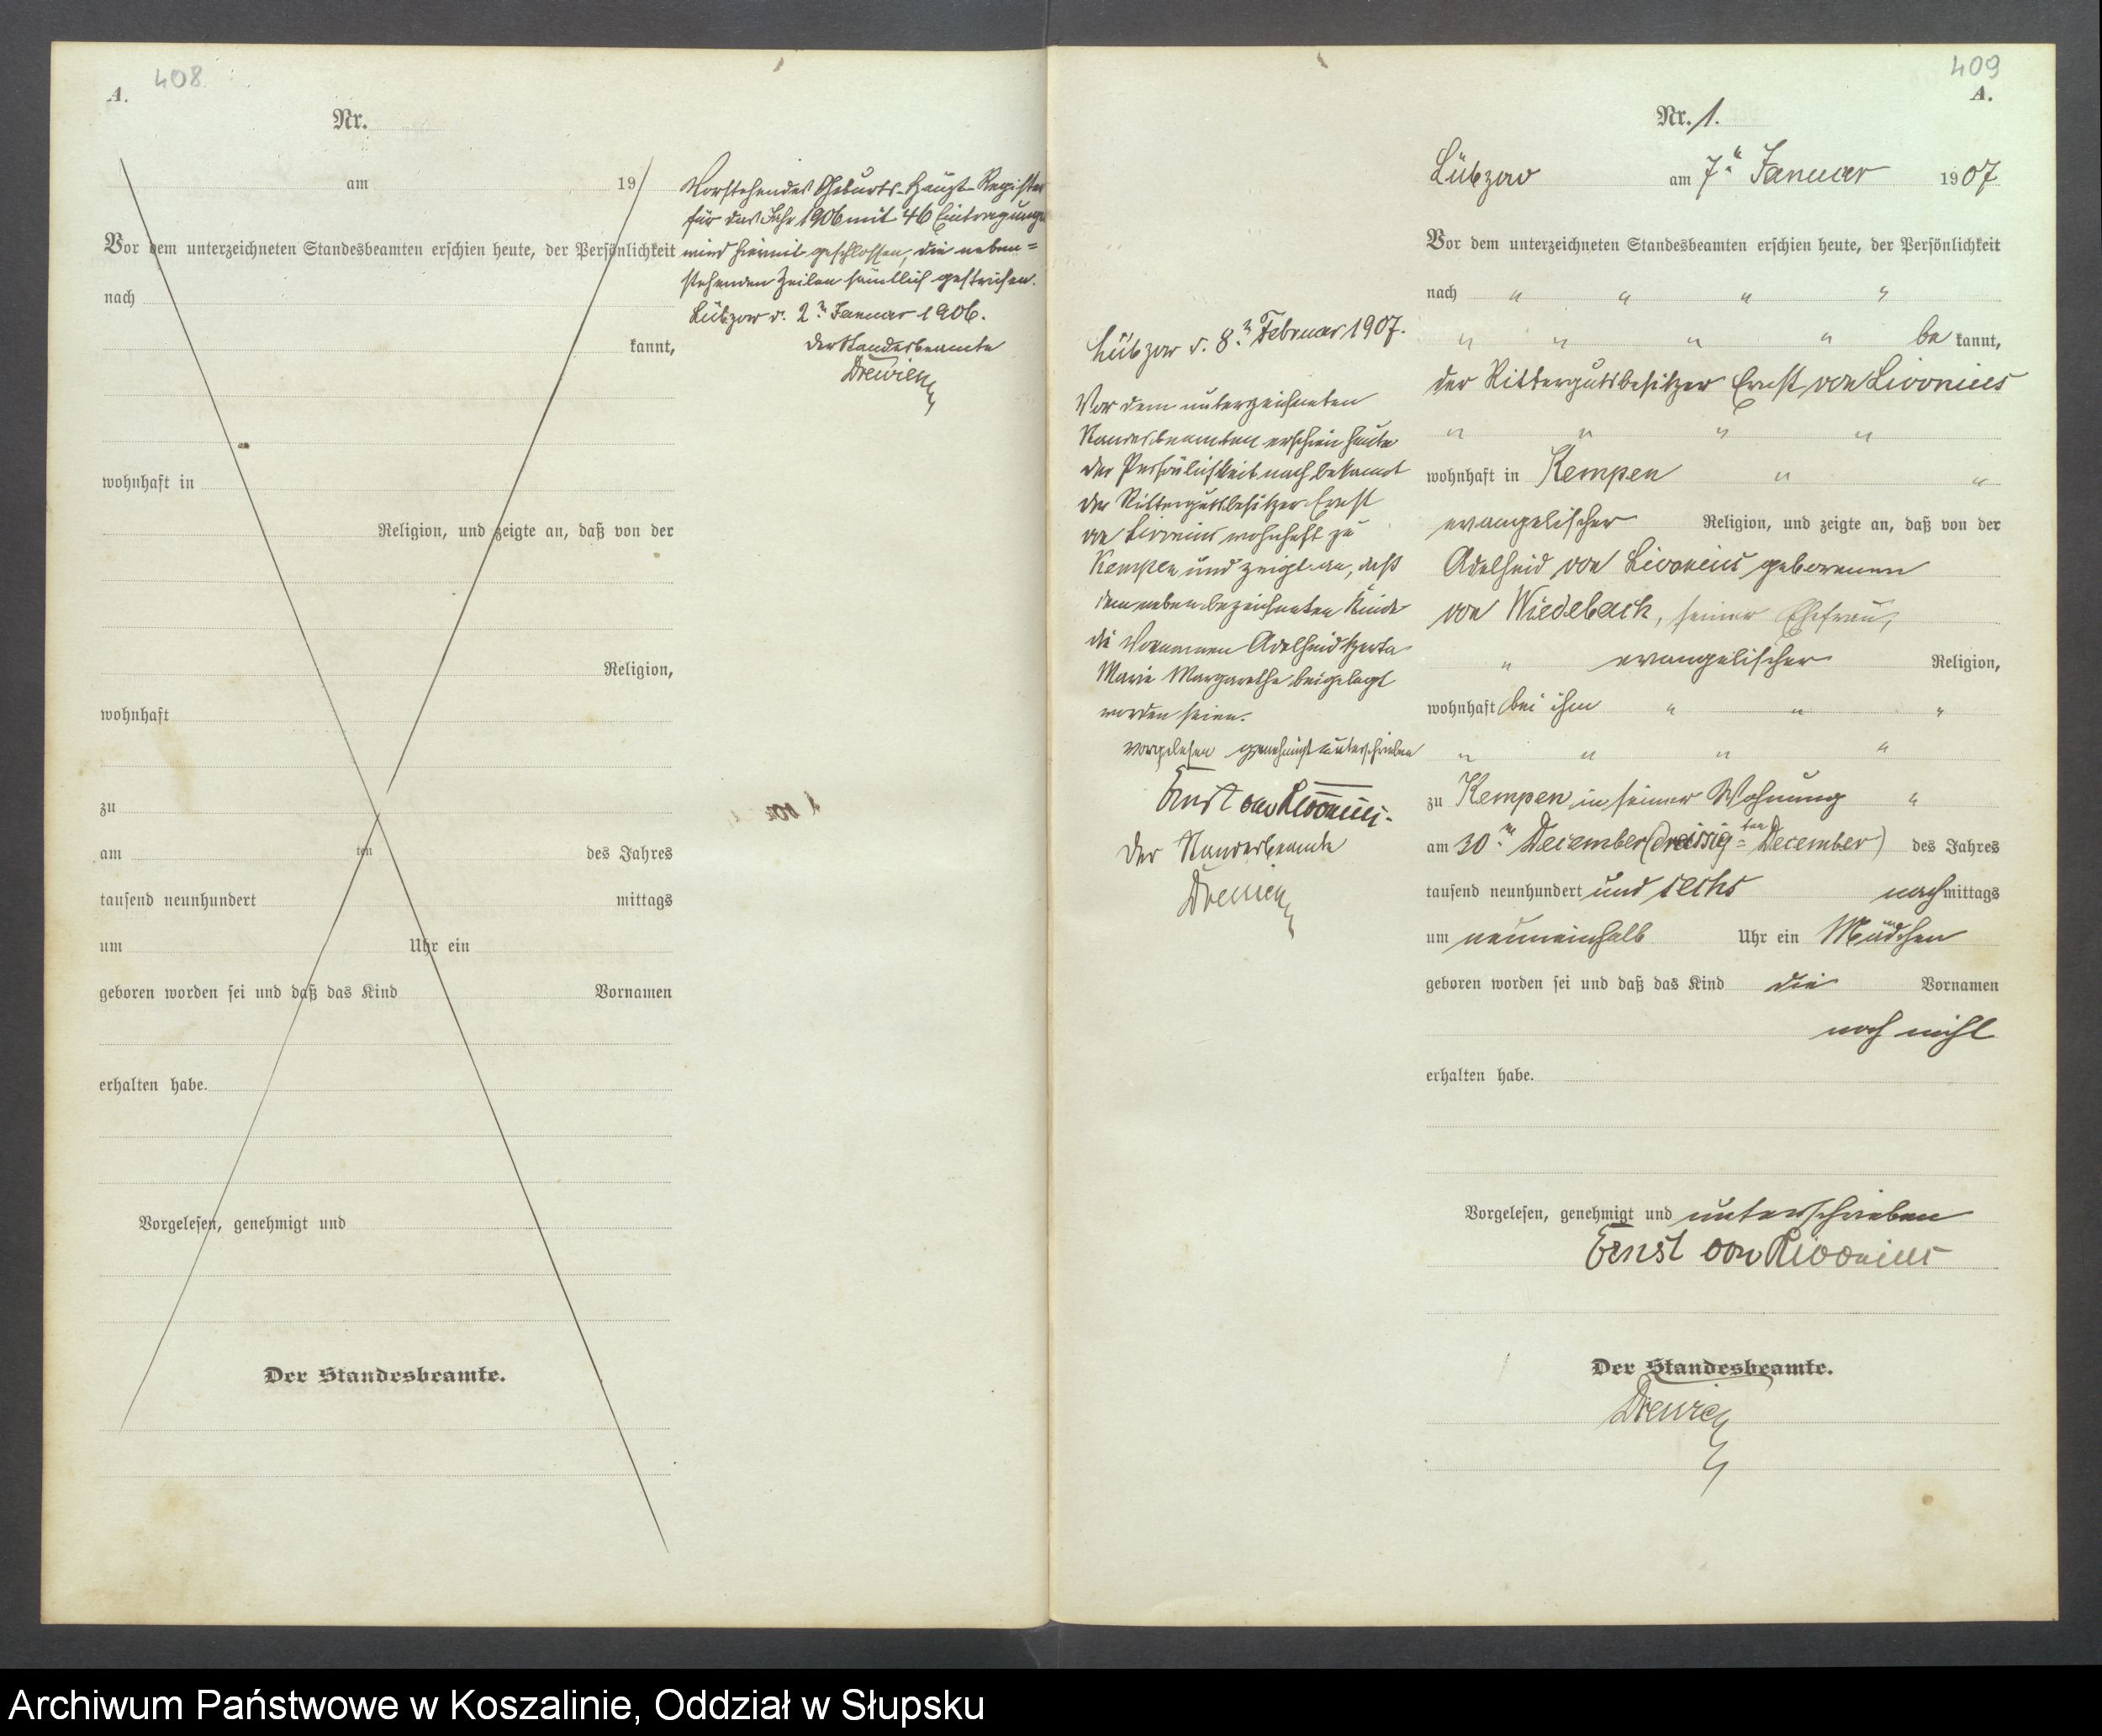 408
A.
Nr.
am 19
Vor dem unterzeichneten Standesbeamten erschien heute, der Persönlichkeit
nach
kannt,
wohnhaft in
Religion, und zeigte an, daß von der
Religion,
wohnhaft
zu
am ten des Jahres
tausend neunhundert mittags
um Uhr ein
geboren worden sei und daß das Kind Vornamen
erhalten habe.
Vorgelesen, genehmigt und
Der Standesbeamte.
Vorstehendes Geburts-Haupt-Register
für das Jahr 1906 mit 46 Eintragungen
wird hiermit geschlossen, die neben=
stehenden Zeilen sämtlich gestrichen.
Lübzow d. 2ⁿ Januar 1906.
Der Standesbeamte
409
A.
Nr. 1.
Lübzow am 7ⁿ Januar 1907
Vor dem unterzeichneten Standesbeamten erschien heute, der Persönlichkeit
nach " " " "
" " " " be kannt,
der Rittergutsbesitzer Ernst von Livonius
" " " "
wohnhaft in Kempen " "
evangelischer Religion, und zeigte an, daß von der
Adelheid von Livonius geborenen
von Wiedebach, seiner Ehefrau,
" evangelischer Religion,
wohnhaft bei ihm " " "
" " " "
zu Kempen in seiner Wohnung "
am 30.ⁿ December (dreissig=ten December) des Jahres
tausend neunhundert und sechs nachmittags
um neuneinhalb Uhr ein Mädchen
geboren worden sei und daß das Kind die Vornamen
noch nicht
erhalten habe.
Vorgelesen, genehmigt und unterschrieben
Ernst von Livonius
Der Standesbeamte.
Lübzow d. 8.ⁿ Februar 1907.
Vor dem unterzeichneten
Standesbeamten erschien heute
der Persönlichkeit nach bekannt
der Rittergutsbesitzer Ernst
von Livonius wohnhaft zu
Kempen und zeigt an, daß
dem nebenbezeichneten Kinde
die Vornamen Adelheid Herta
Marie Margarethe beigelegt
worden seien.
vorgelesen genehmigt unterschrieben
Ernst von Livonius.
Der Standesbeamte
Archiwum Państwowe w Koszalinie, Oddział w Słupsku